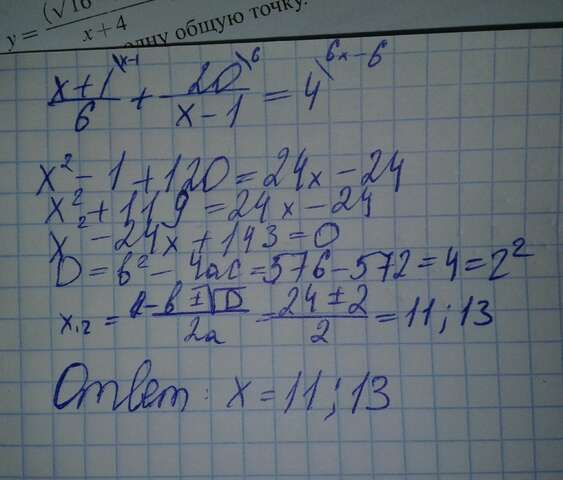 y = (√16
x + 4
одну общую точку.
(x+1)/6 \x-1 + 20/(x-1) \6 = 4 \6x-6
x² - 1 + 120 = 24x - 24
x² + 119 = 24x - 24
x² - 24x + 143 = 0
D = b² - 4ac = 576 - 572 = 4 = 2²
x₁,₂ = (-b ± √D)/2a = (24 ± 2)/2 = 11; 13
Ответ: x = 11; 13